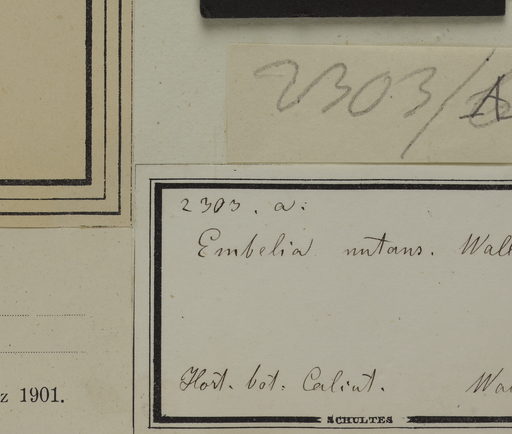 2303/A
2303. a:
Embelia nutans. Wall
Hort. bot. Calcut. Wa
SCHULTES
z 1901.